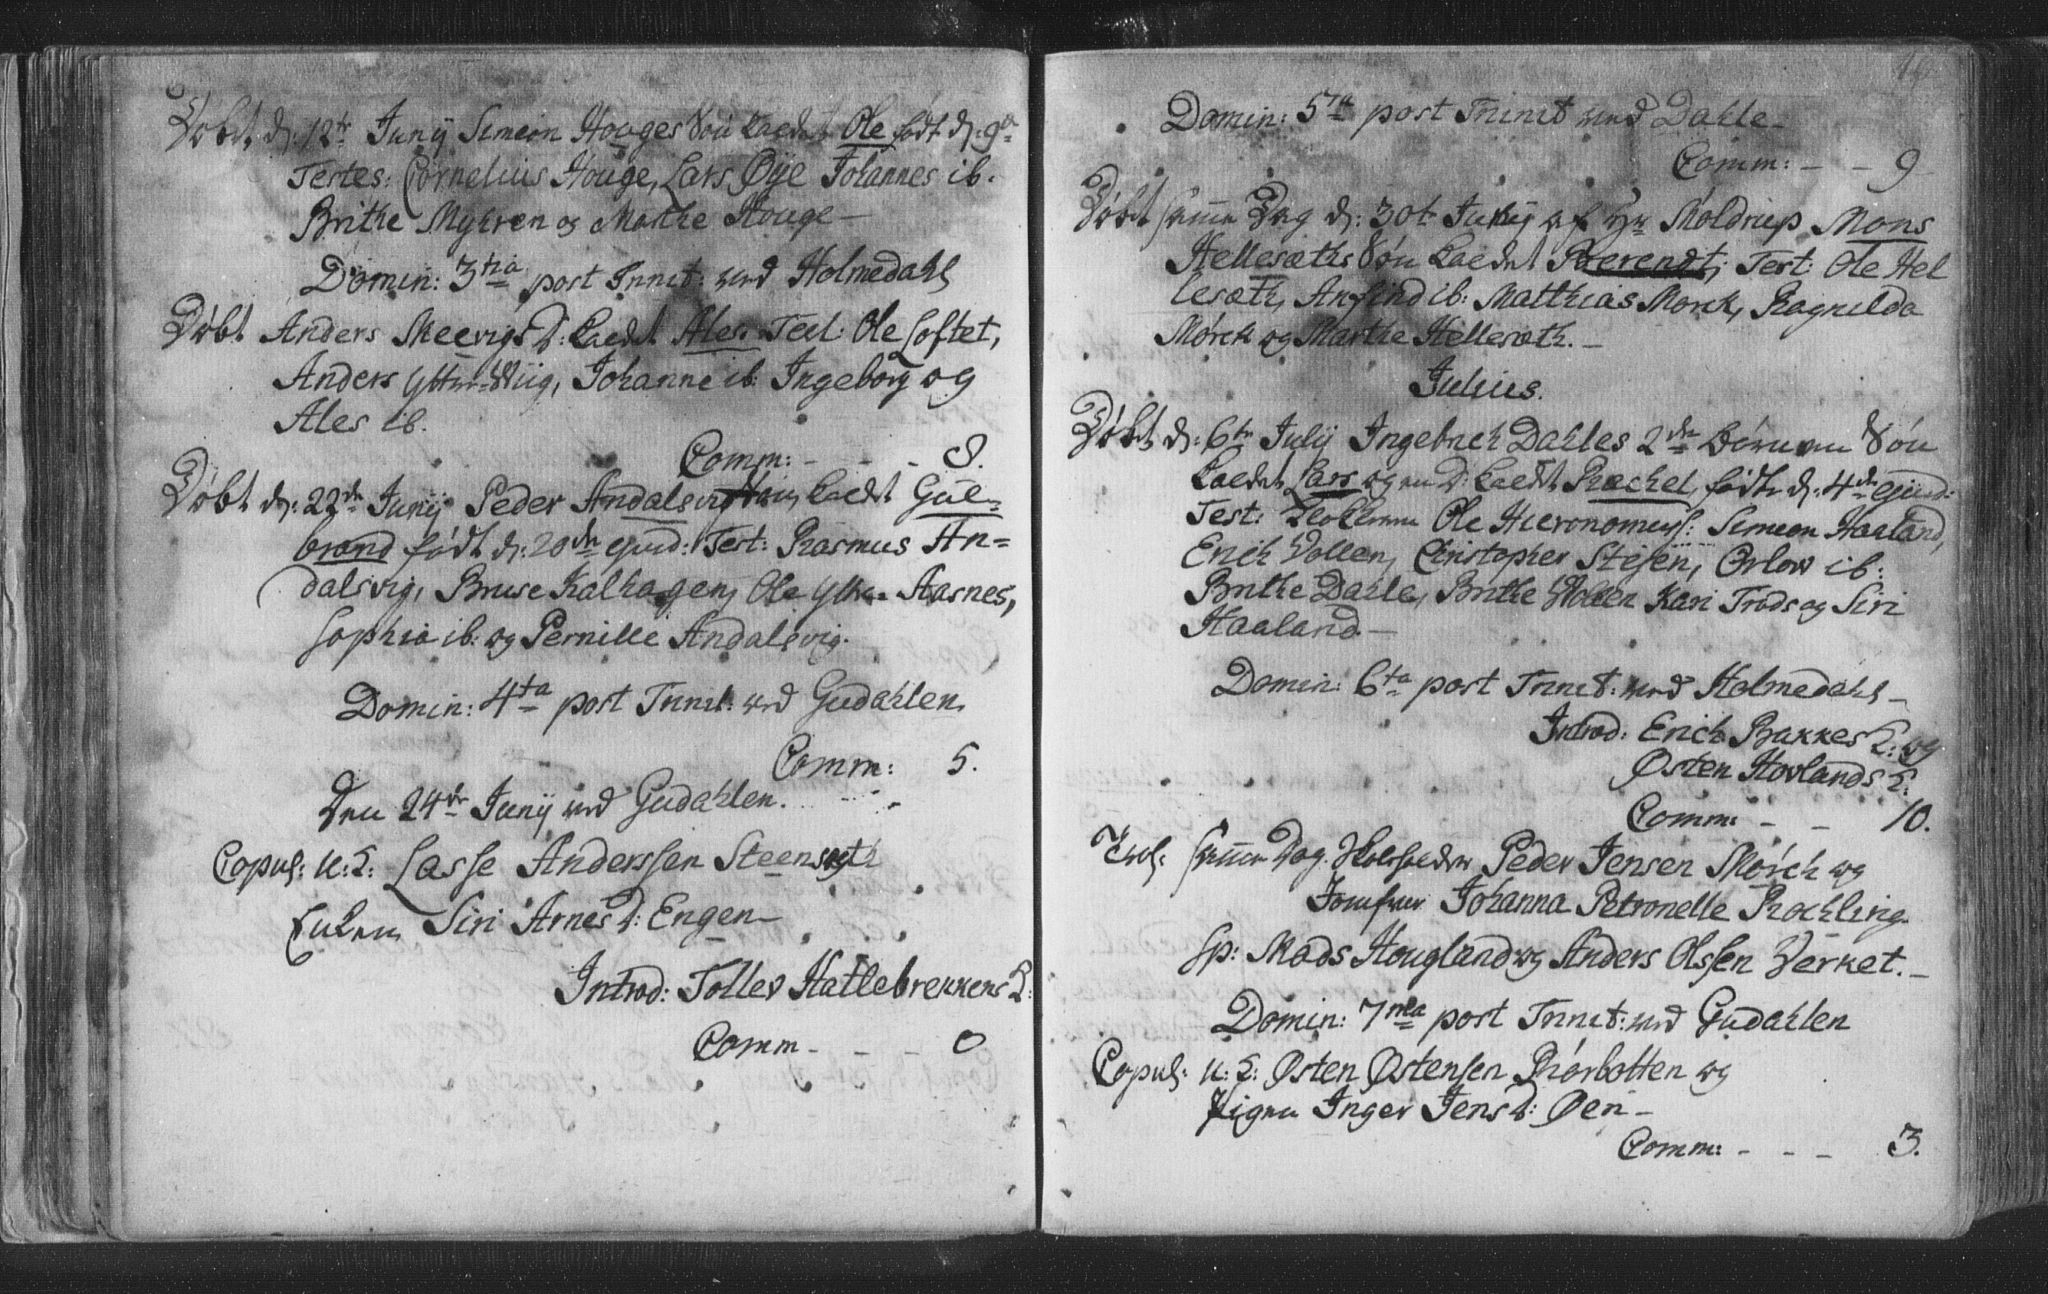 Døbt d: 12te Junij Simeon Houges Søn kaldet Ole født d: 9a
Testes: Cornelius Houge, Lars Øÿe Johannes ib.
Brithe Myhren og Mathe Houge—
Domin: 3tia post Trinit: ved Holmedahl
Døbt Anders Skeevigs D: kaldet Ales. Test: Ole Loftet,
Anders Ytter-Wiig, Johanne ib: Ingeborg og
Ales ib.
Comm: - - - 8.
Døbt d: 22de Junij Peder Andalsvigs Søn, kaldt Gul-
brand født d: 20de ejusd: Test: Rasmus An-
dalsvig, Bruse Kalhagen, Ole Ytre-Aasnes,
Sophia ib: og Pernille Andalsvig.
Domin: 4ta post Trinit: ved Gudahlen.
Comm: 5.
Den 24de Junij ved Gudahlen.
Copul: u: K: Lasse Anderssen Steensæth
Enken Siri Arnes D: Engen—
Introd: Tollev Hatlebrekkens K:
Comm - - - 0
Domin: 5ta post Trinit ved Dahle—
Comm: - - 9
Døbt samme Dag d: 30te Junij af Hr Moldrup Mons
Hellesæths Søn kaldet Baerendt, Test: Ole Hel
lesæth, Anfind ib: Matthias Morck, Ragnilda
Mörck og Marthe Hellesæth.—
Julius.
Døbt d: 6te Julij Ingebrich Dahles 2de Børn en Søn
kaldet Lars og en D: kaldt Rachel, født d: 4de ejusd:
Test: Klokkeren Ole Hieronomeuss: Simeon Haaland,
Erich Vollen, Christopher Stejen, Orlow ib:
Brithe Dahle, Brithe Vollen Kari Trods og Siri
Haaland.—
Domin: 6ta post Trinit: ved Holmedahl—
Introd: Erich Bakkes K: og
Østen Hovlands K:
Comm: - - 10.
Trol: samme Dag. Skoleholder Peder Jensen Mörch og
Jomfrue Johanna Petronelle Rochling.
Sp: Mads Hougland og Anders Olssen Verket.—
Domin: 7ma post Trinit: ved Gudahlen
Copul: u: K: Østen Østensen Rörbotten og
Pigen Inger Jens D: Øen—
Comm: - - - 3.